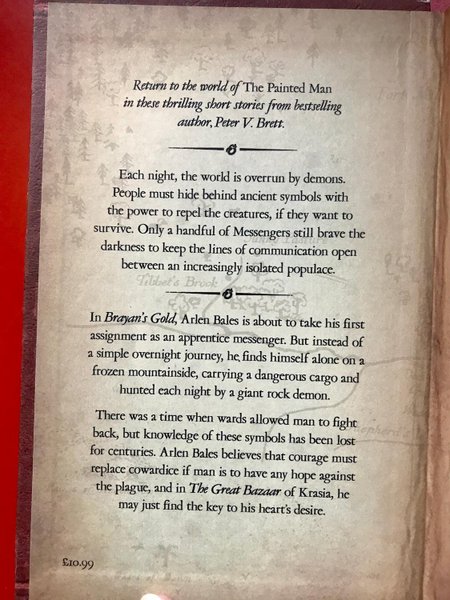 Return to the world of The Painted Man
in these thrilling short stories from bestselling
author, Peter V. Brett.
Each night, the world is overrun by demons.
People must hide behind ancient symbols with
the power to repel the creatures, if they want to
survive. Only a handful of Messengers still brave the
darkness to keep the lines of communication open
between an increasingly isolated populace.
Tibbet's Brook
In Brayan's Gold, Arlen Bales is about to take his first
assignment as an apprentice messenger. But instead of
a simple overnight journey, he finds himself alone on a
frozen mountainside, carrying a dangerous cargo and
hunted each night by a giant rock demon.
There was a time when wards allowed man to fight
back, but knowledge of these symbols has been lost
for centuries. Arlen Bales believes that courage must
replace cowardice if man is to have any hope against
the plague, and in The Great Bazaar of Krasia, he
may just find the key to his heart's desire.
£10.99